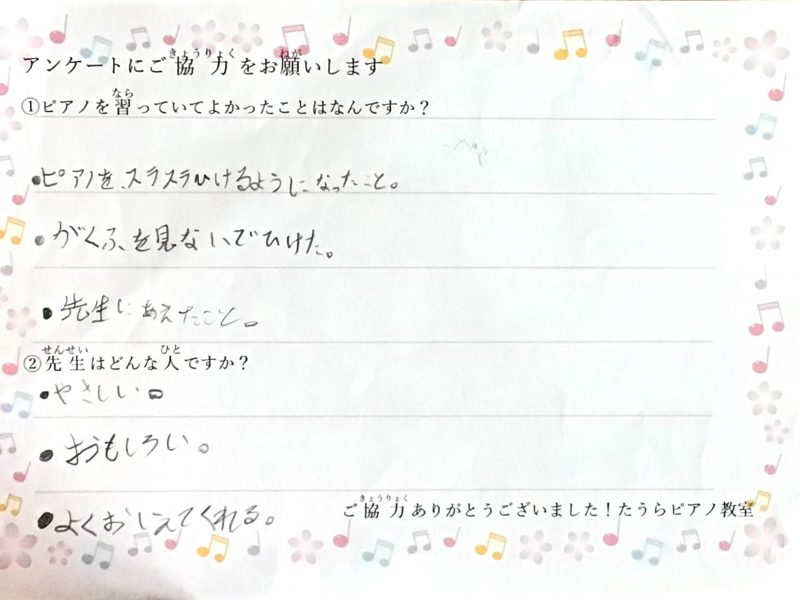 アンケートにご協力をお願いします
①ピアノを習っていてよかったことはなんですか？
•ピアノを、スラスラひけるようになったこと。
•がくふを見ないでひけた。
•先生にあえたこと。
②先生はどんな人ですか？
•やさしい。
•おもしろい。
•よくおしえてくれる。
ご協力ありがとうございました！たうらピアノ教室